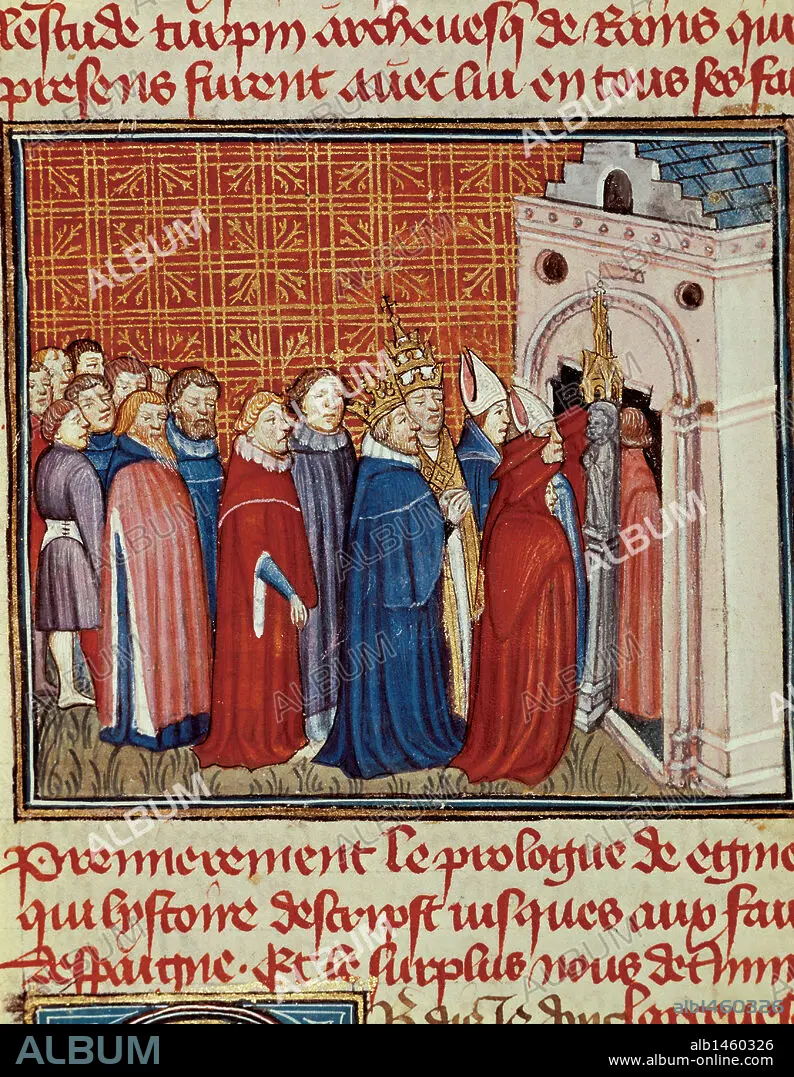 lestude turpin archevesq de Rains qui
presens furent avec lui en tous ses fai
Premierement le prologue de egine
qui lystoire descript iusques aux fai
despaigne. Et le surplus nous determi
ALBUM
alb1460326
www.album-online.com